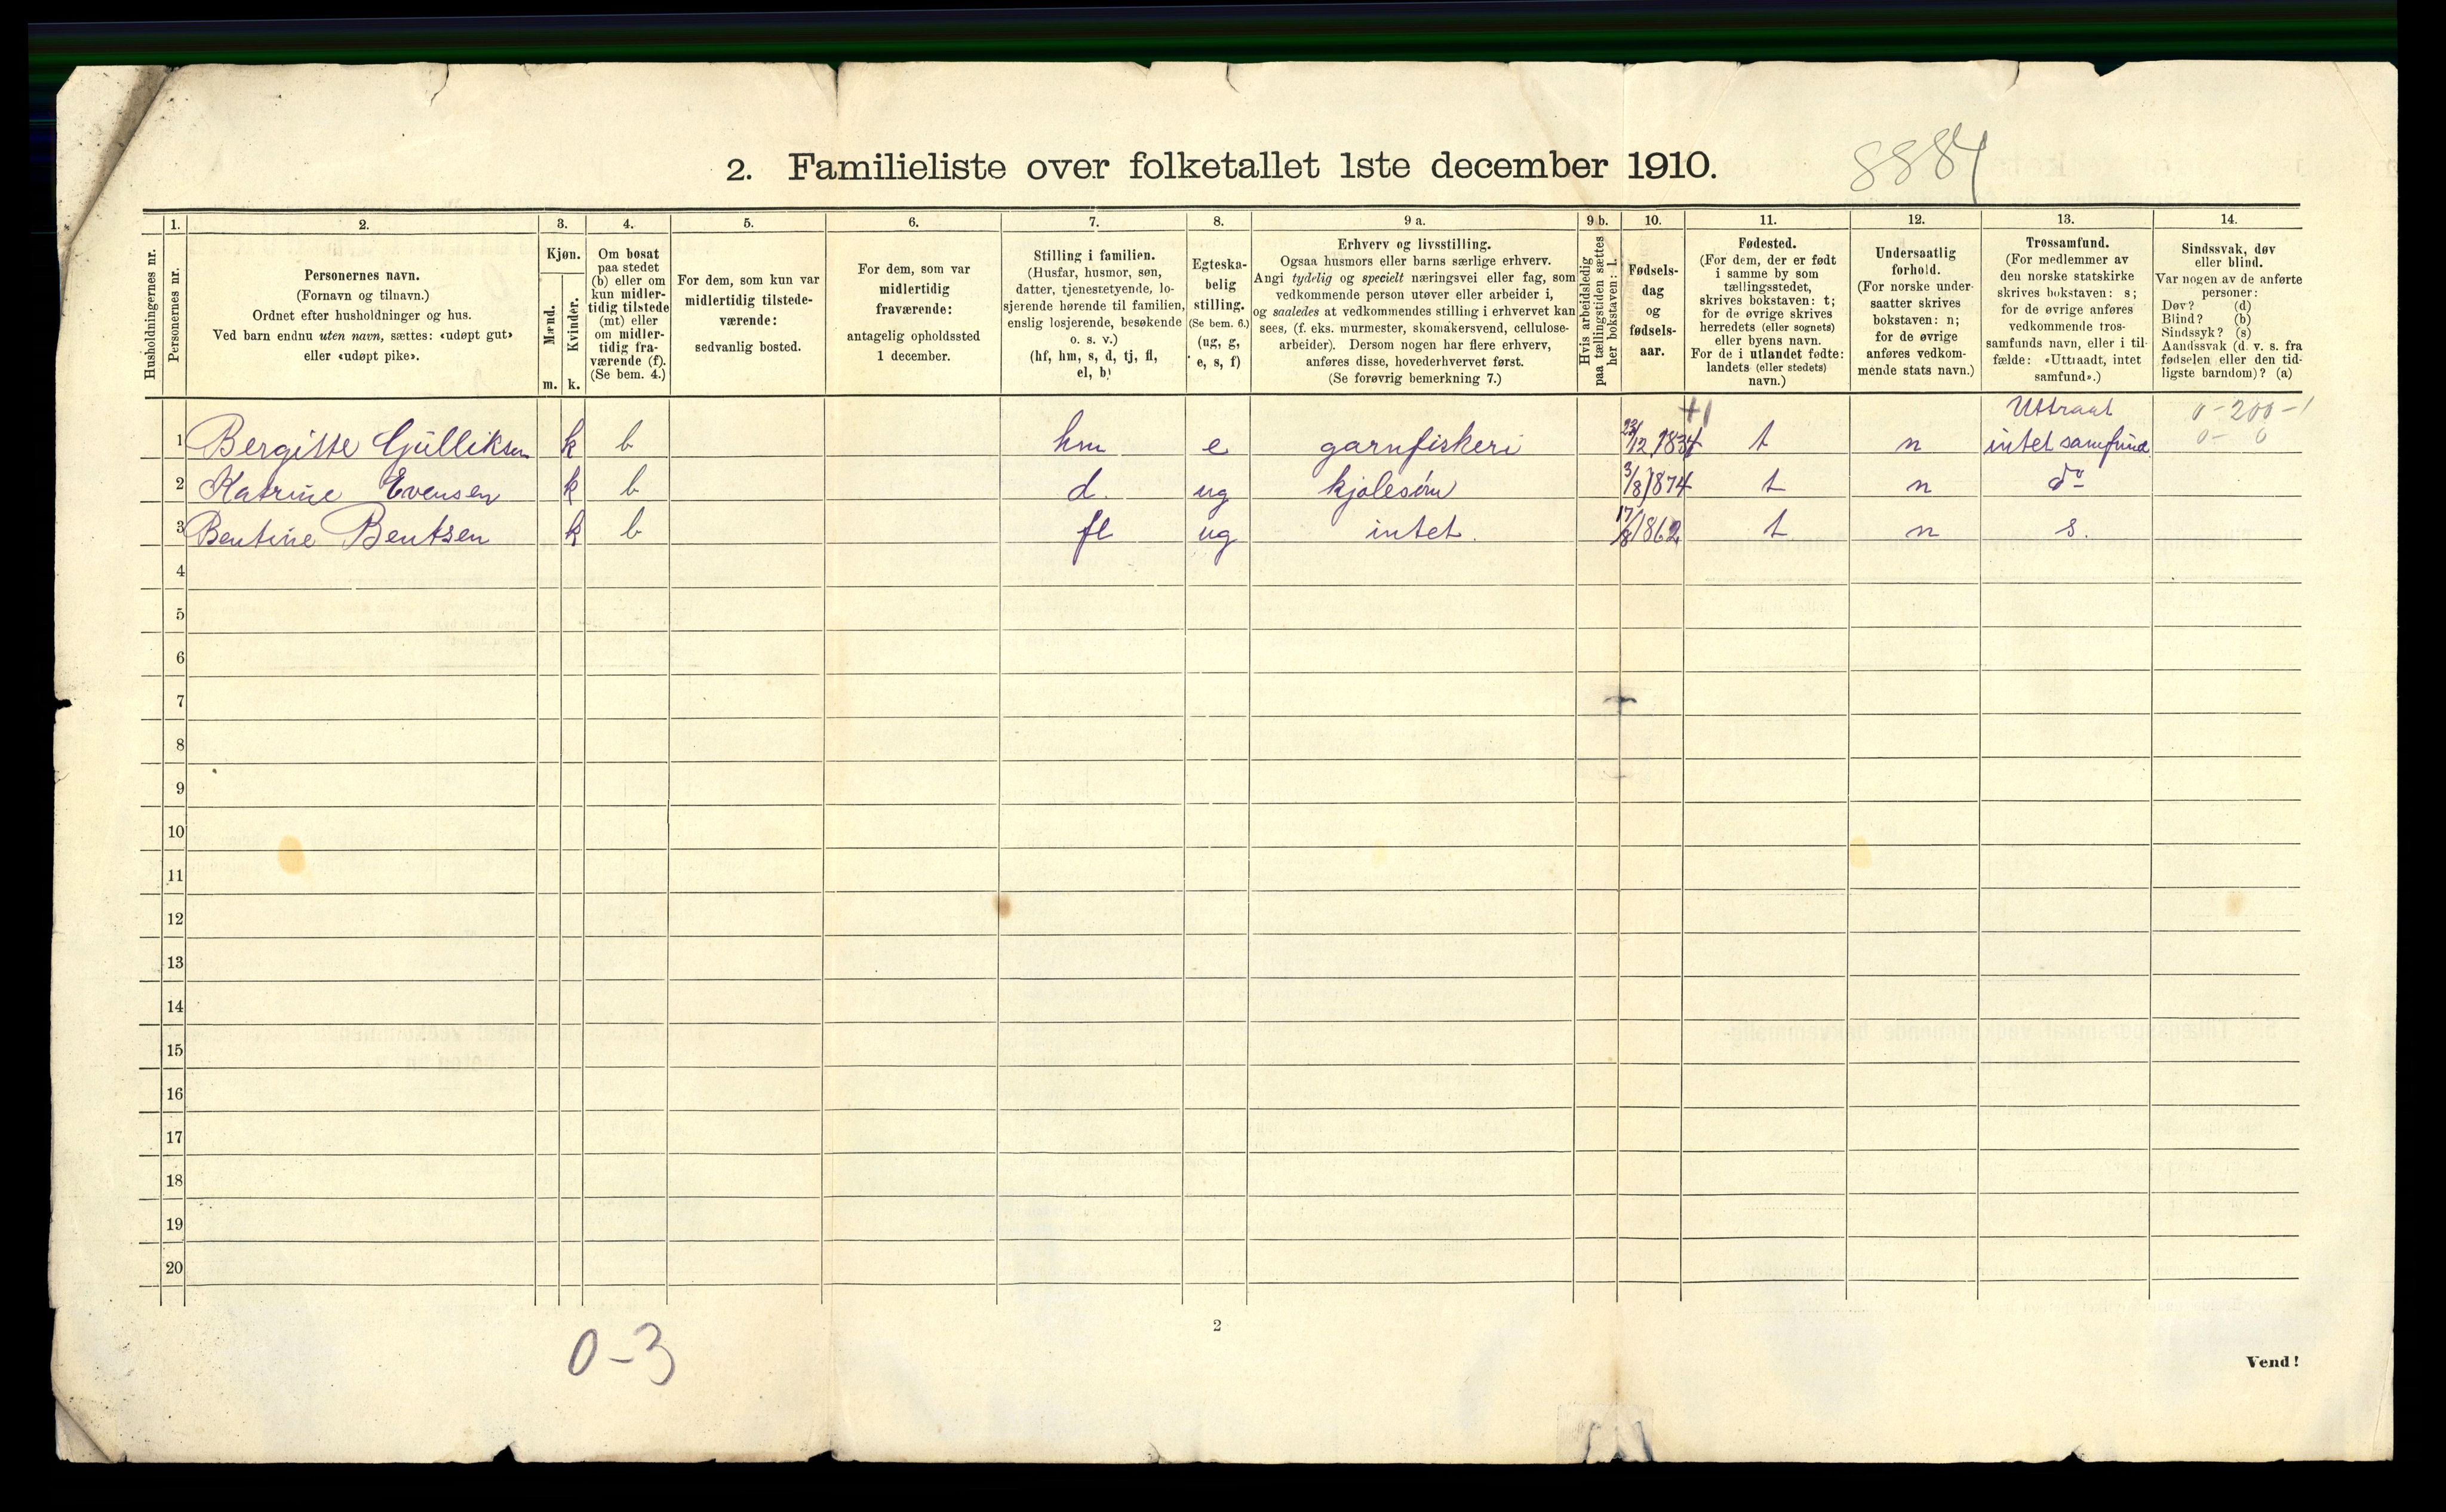 2. Familieliste over folketallet 1ste december 1910.
8884
Husholdningernes nr.
1.
Personernes nr.
2.
Personernes navn.
(Fornavn og tilnavn.)
Ordnet efter husholdninger og hus.
Ved barn endnu uten navn, sættes: «udøpt gut»
eller «udøpt pike».
3.
Kjøn.
Mænd.
m.
Kvinder.
k.
4.
Om bosat
paa stedet
(b) eller om
kun midler-
tidig tilstede
(mt) eller
om midler-
tidig fra-
værende (f).
(Se bem. 4.)
5.
For dem, som kun var
midlertidig tilstede-
værende:
sedvanlig bosted.
6.
For dem, som var
midlertidig
fraværende:
antagelig opholdssted
1 december.
7.
Stilling i familien.
(Husfar, husmor, søn,
datter, tjenestetyende, lo-
sjerende hørende til familien,
enslig losjerende, besøkende
o. s. v.)
(hf, hm, s, d, tj, fl,
el, b)
8.
Egteska-
belig
stilling.
(Se bem. 6.)
(ug, g,
e, s, f)
9 a.
Erhverv og livsstilling.
Ogsaa husmors eller barns særlige erhverv.
Angi tydelig og specielt næringsvei eller fag, som
vedkommende person utøver eller arbeider i,
og saaledes at vedkommendes stilling i erhvervet kan
sees, (f. eks. murmester, skomakersvend, cellulose-
arbeider). Dersom nogen har flere erhverv,
anføres disse, hovederhvervet først.
(Se forøvrig bemerkning 7.)
9 b.
Hvis arbeidsledig
paa tællingstiden sættes
her bokstaven: l.
10.
Fødsels-
dag
og
fødsels-
aar.
11.
Fødested.
(For dem, der er født
i samme by som
tællingsstedet,
skrives bokstaven: t;
for de øvrige skrives
herredets (eller sognets)
eller byens navn.
For de i utlandet fødte:
landets (eller stedets)
navn.)
12.
Undersaatlig
forhold.
(For norske under-
saatter skrives
bokstaven: n;
for de øvrige
anføres vedkom-
mende stats navn.)
13.
Trossamfund.
(For medlemmer av
den norske statskirke
skrives bokstaven: s;
for de øvrige anføres
vedkommende tros-
samfunds navn, eller i til-
fælde: «Uttraadt, intet
samfund».)
14.
Sindssvak, døv
eller blind.
Var nogen av de anførte
personer:
Døv? (d)
Blind? (b)
Sindssyk? (s)
Aandssvak (d. v. s. fra
fødselen eller den tid-
ligste barndom)? (a)
+1 Uttraat 0-200-1
1 Bergitte Gulliksen k b hm e garnfiskeri 23/12 1834 t n intet samfund 0- 0
2 Katrine Evensen k b d. ug kjolesøm 3/8 1874 t n do
3 Bentine Bentsen k b fl ug intet. 17/8 1862 t n s.
4
5
6
7
8
9
10
11
12
13
14
15
16
17
18
19
20
0-3
2
Vend!